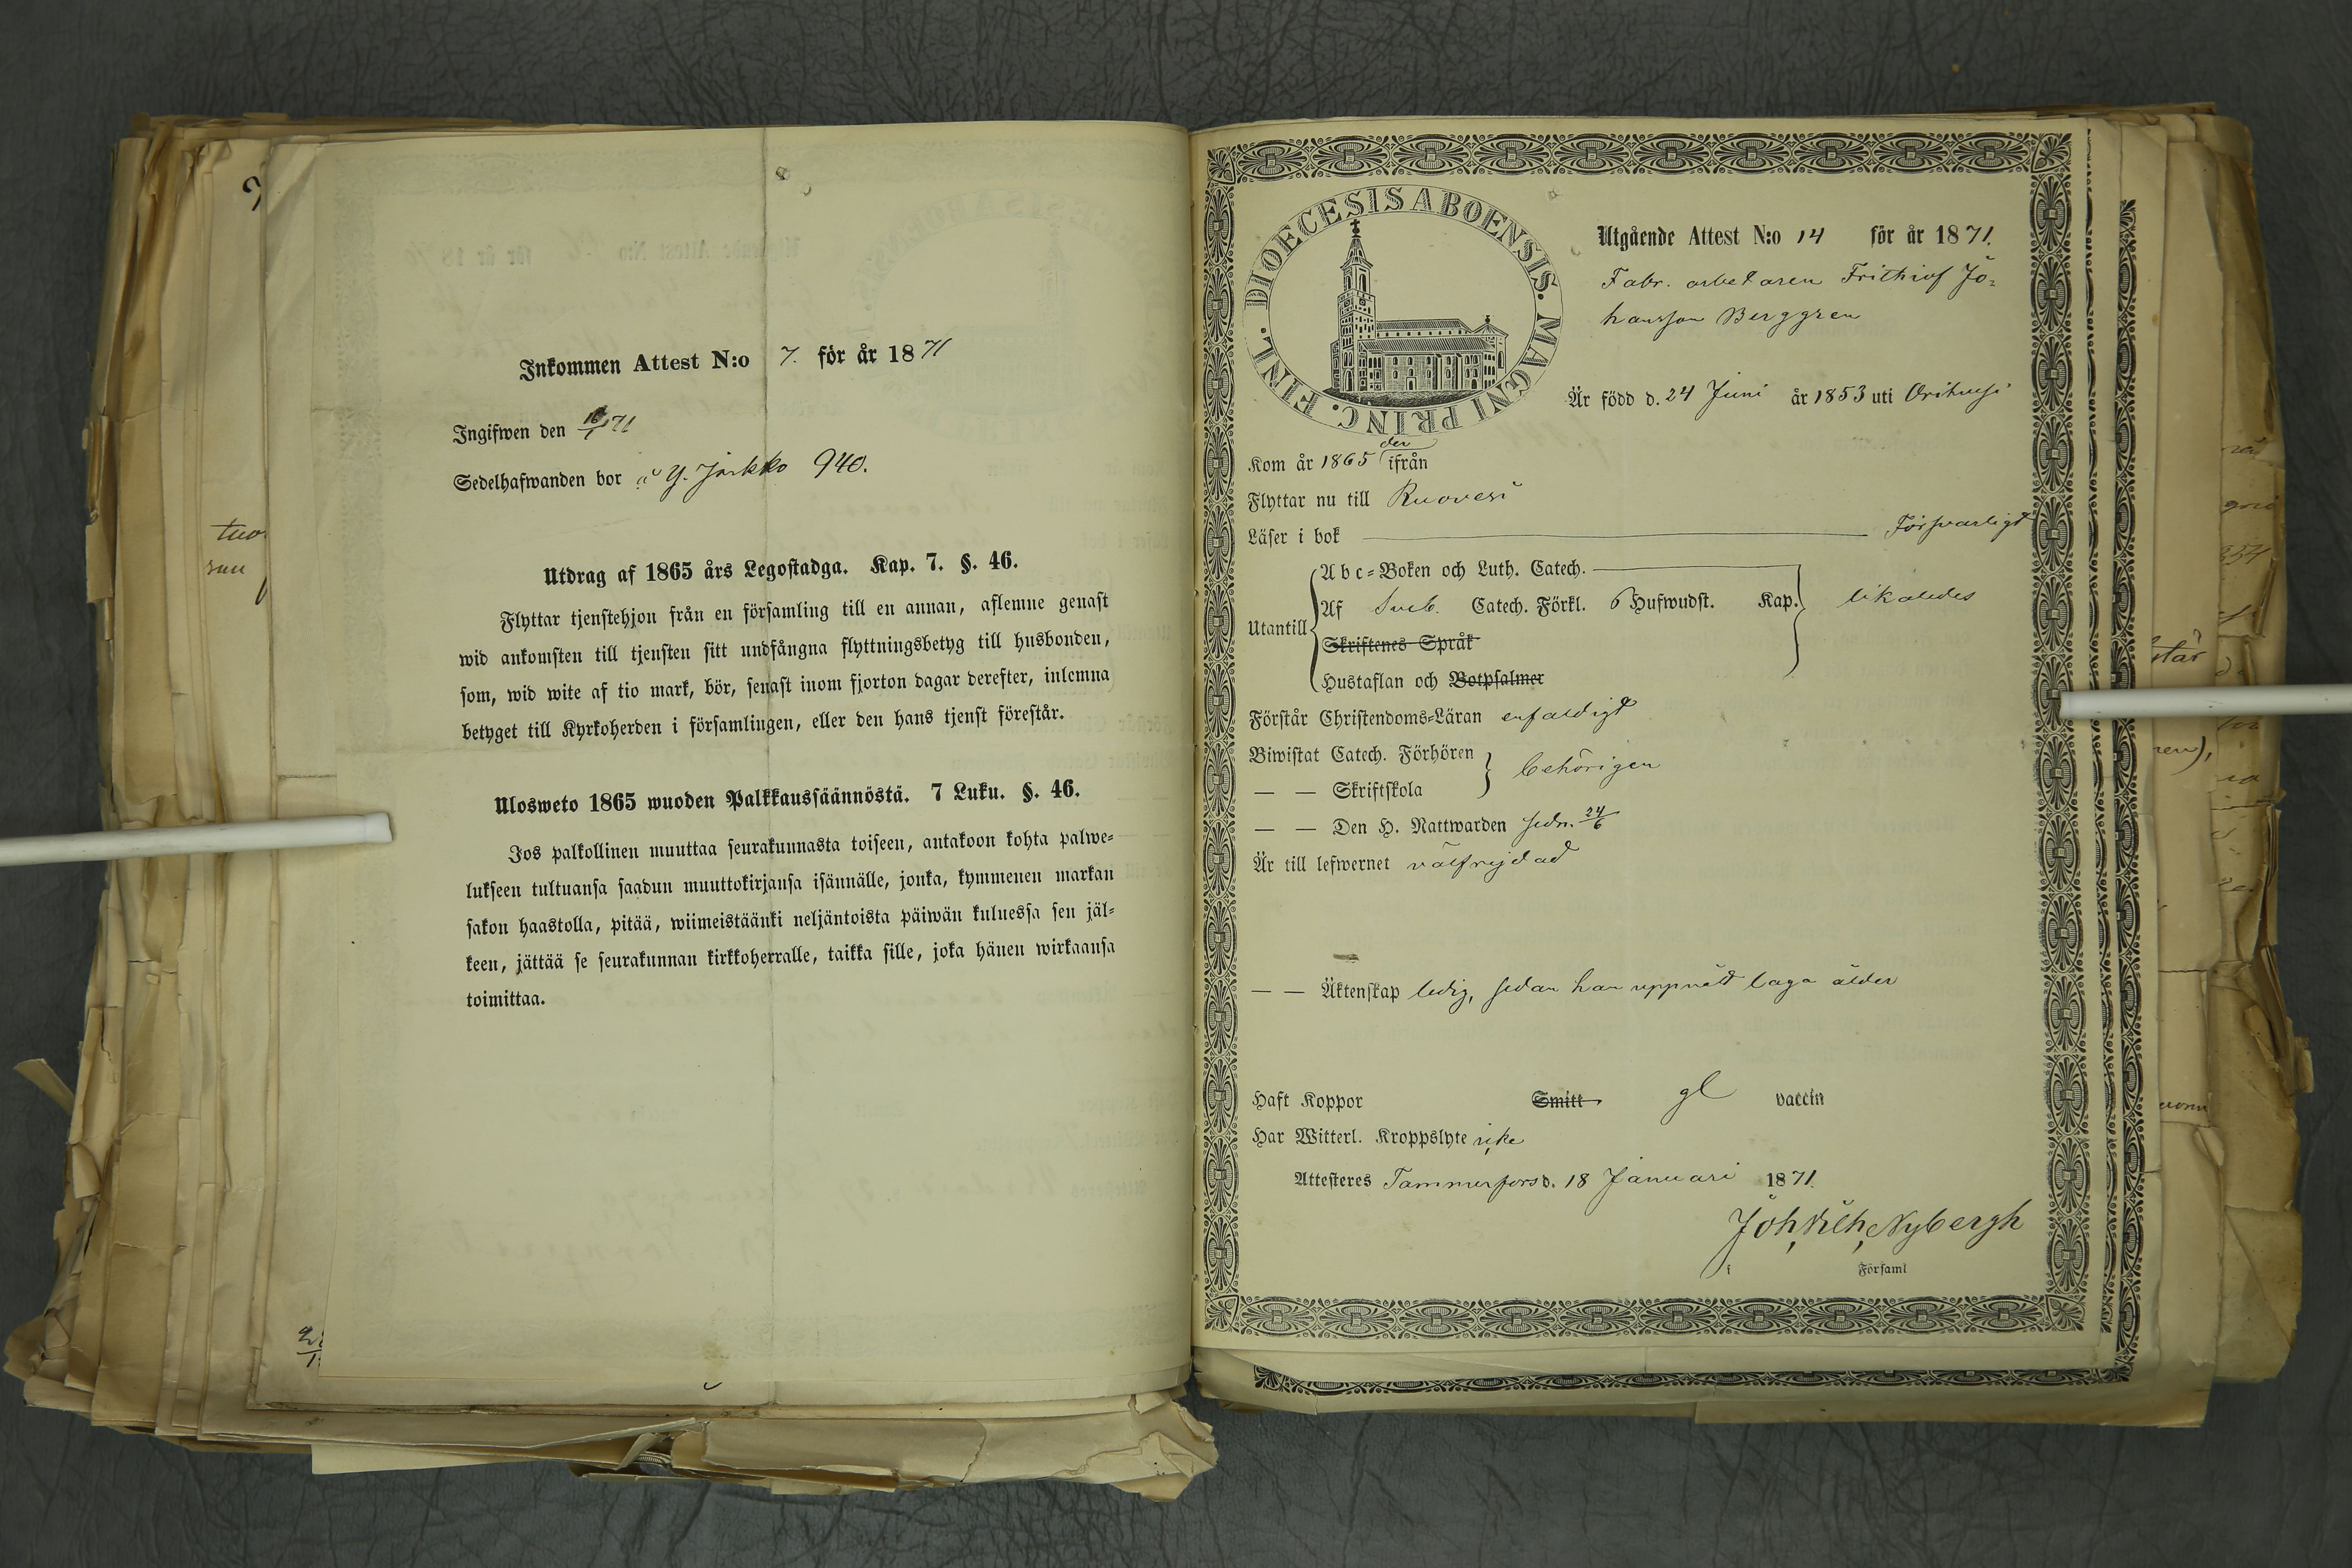 Inkommen Attest N:o 7. för år 1871
Ingifwen den 16/1 71
Sedelhafwanden bor å Y. Jarkko 940.
Utdrag af 1865 års Legostadga. Kap. 7. §. 46.
Flyttar tjenstehjon från en församling till en annan, aflemne genast
wid ankomsten till tjensten sitt undfångna flyttningsbetyg till husbonden,
som, wid wite af tio mark, bör, senast inom fjorton dagar derefter, inlemna
betyget till Kyrkoherden i församlingen, eller den hans tjenst förestår.
Ulosweto 1865 wuoden Palkkaussäännöstä. 7 Luku. §. 46.
Jos palkollinen muuttaa seurakunnasta toiseen, antakoon kohta palwe-
lukseen tultuansa saadun muuttokirjansa isännälle, jonka, kymmenen markan
sakon haastolla, pitää, wiimeistäänki neljäntoista päiwän kuluessa sen jäl-
keen, jättää se seurakunnan kirkkoherralle, taikka sille, joka hänen wirkaansa
toimittaa.
DIOECESIS ABOENSIS. MAGNI PRINC. FINL.
Utgående Attest N:o 14 för år 1871.
Fabr. arbetaren Frithiof Jo-
hansson Berggren
Är född d. 24 Juni år 1853 uti Orihvesi
Kom år 1865 der ifrån
Flyttar nu till Ruovesi
Läser i bok Försvarligt
Abc-Boken och Luth. Catech.
Utantill Af Sveb. Catech. Förkl. 6 Hufwudst. Kap. likaledes
Skriftenes Språk
Hustaflan och Botpsalmer
Förstår Christendoms-Läran enfaldigt
Biwistat Catech. Förhören
— — Skriftskola behörigen
— — Den H. Nattwarden sedn. 24/6
Är till lefwernet välfrejdad
— — Äktenskap ledig, sedan han uppnått laga ålder
Haft Koppor Smitt gl vaccin
Har Witterl. Kroppslyte icke
Attesteres Tammerfors d. 18 Januari 1871.
Joh, Vilh, Nybergh
i Församl